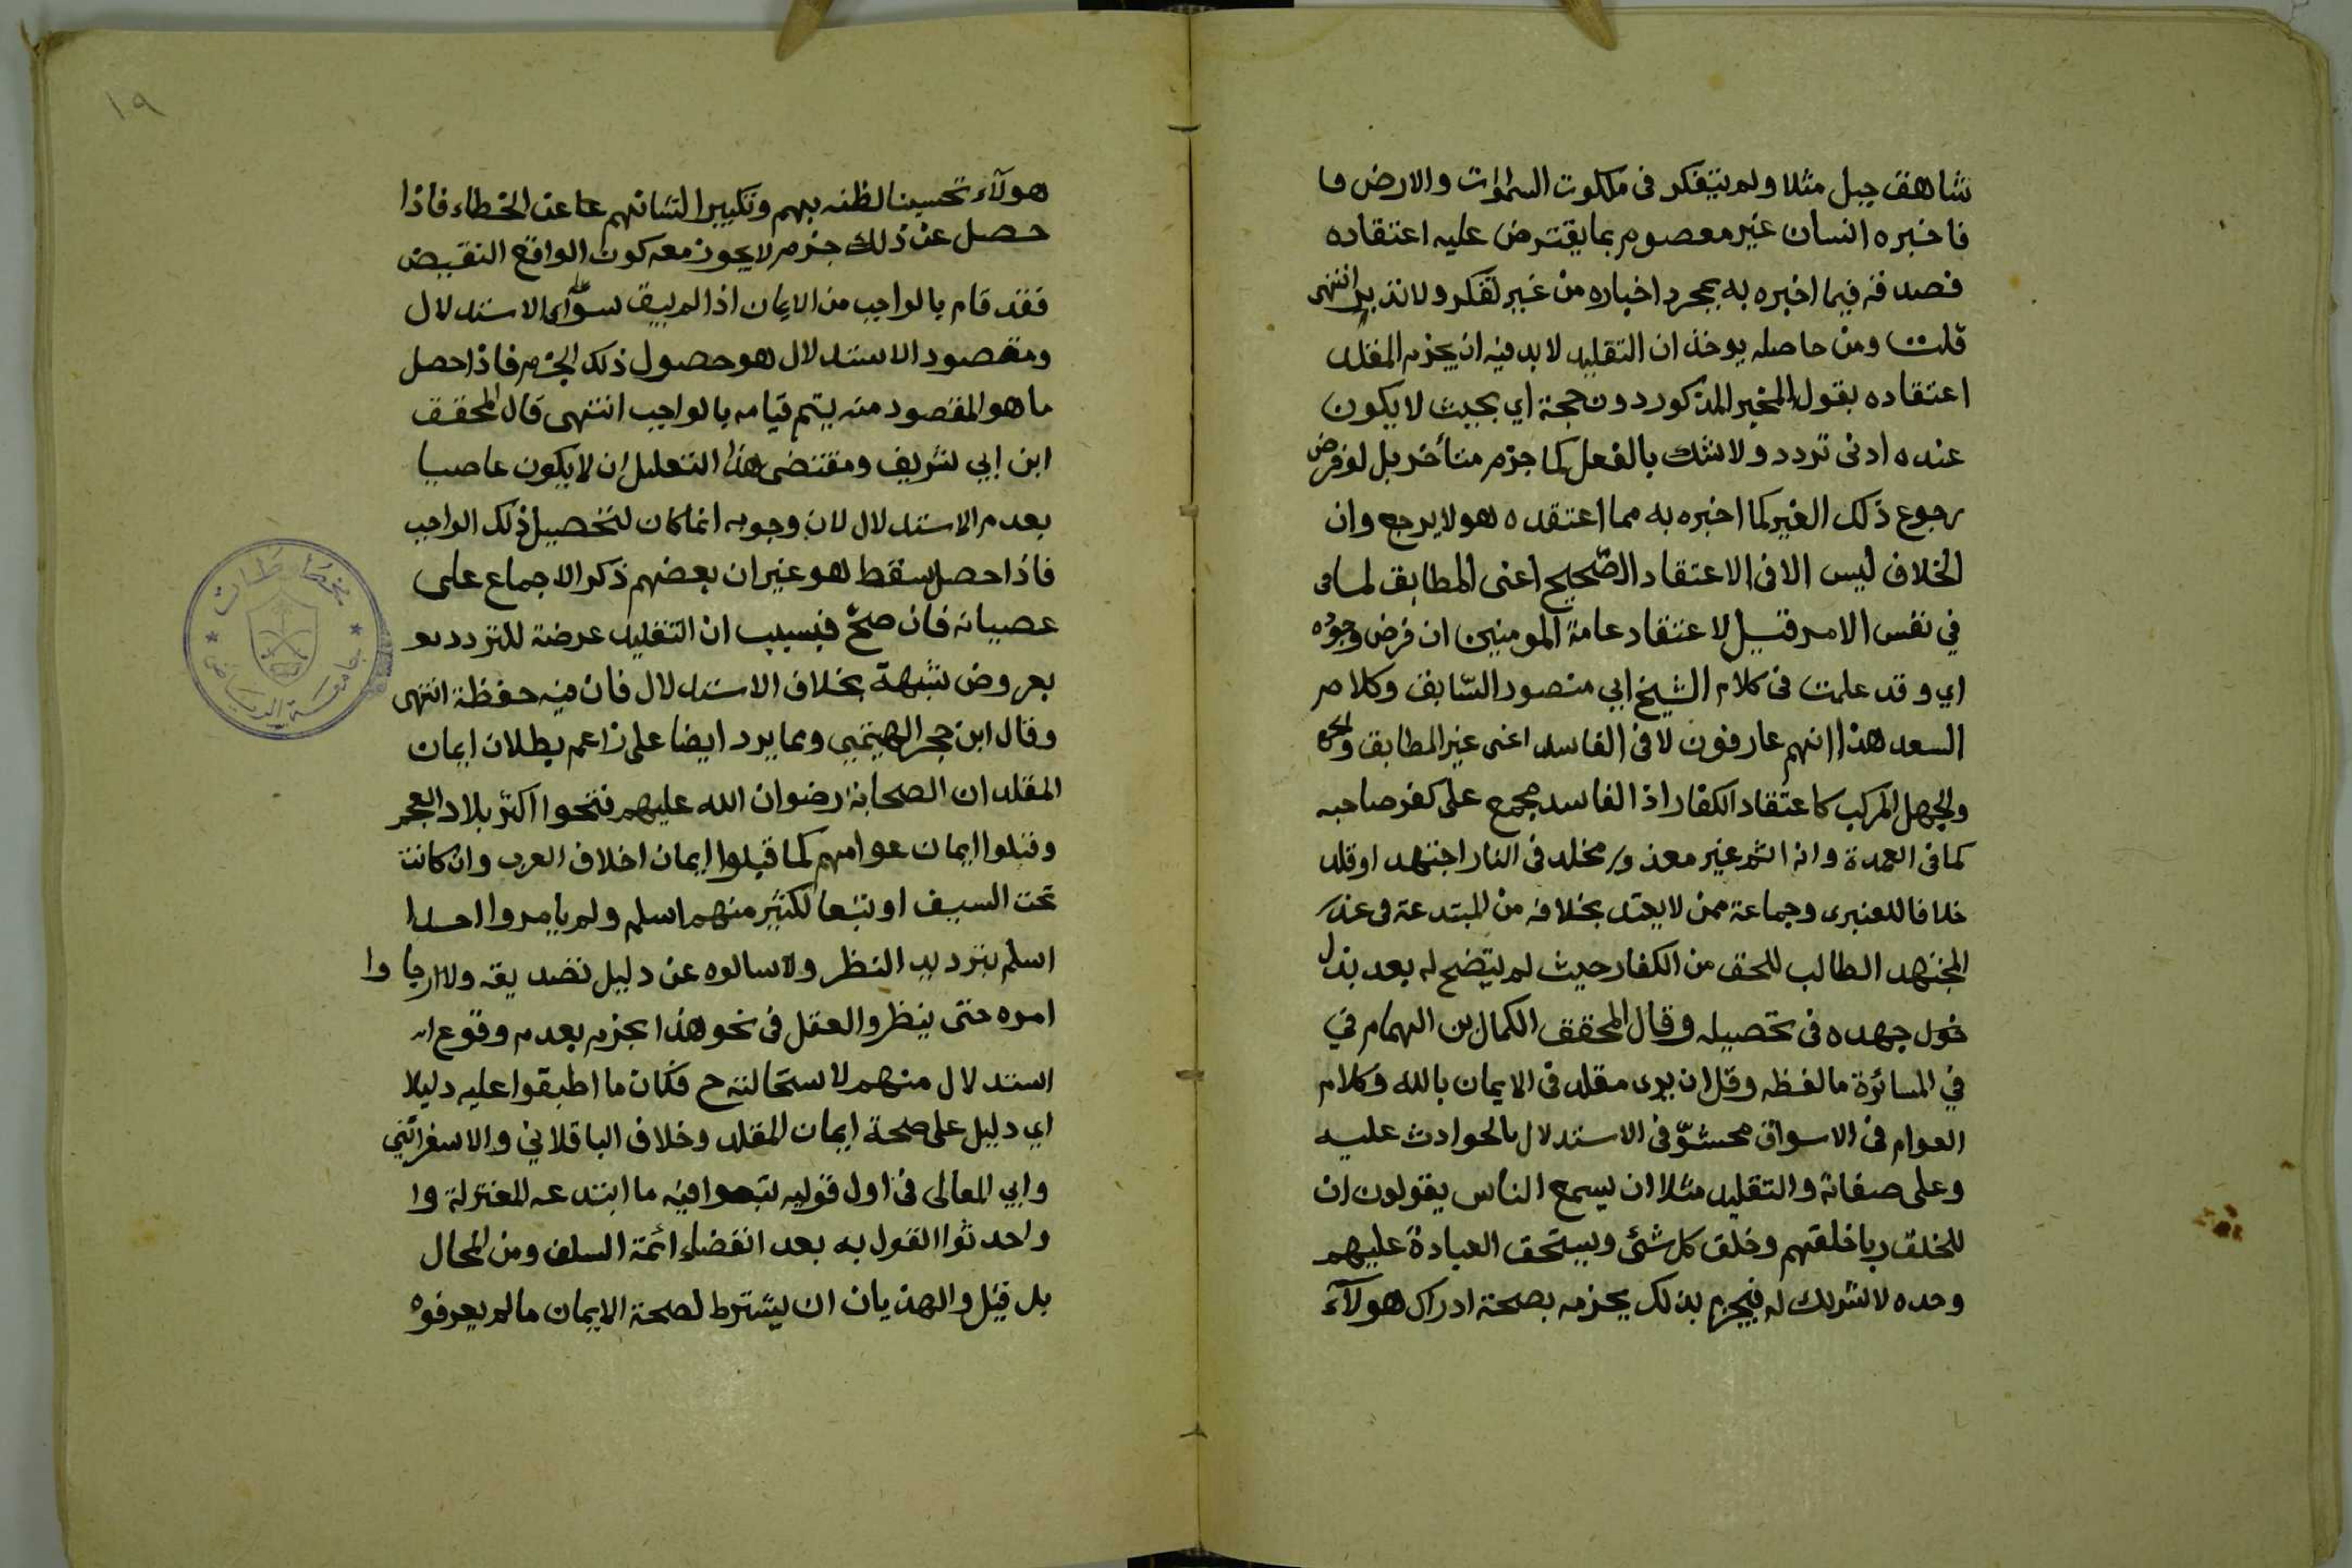 شاهق جبل مثلا ولم يتفكر في ملكوت السموات والارض فا
فاخبره انسان غير معصوم بما يفترض عليه اعتقاده
فصدقه فيما اخبره به بمجرد اخباره من غير تفكر ولا تدبر انتهى
قلت ومن حاصله يوخذ ان التقليد لا بد فيه ان يجزم المقلد
اعتقاده بقول المخبر المذكور دون حجة اي بحيث لا يكون
عنده ادنى تردد ولا شك بالفعل كما جزم متأخر بل لو فرض
رجوع ذلك الغير كما اخبره به مما اعتقده هو لا يرجع وان
الخلاف ليس الا في الاعتقاد الصحيح اعنى المطابق لما في
في نفس الامر قبيل لاعتقاد عامة المومنين ان فرض وجوده
اي وقد علمت في كلام الشيخ ابي منصور السابق وكلام
السعد هذا انهم عارفون لا في الفاسد اعنى غير المطابق والجهل
والجهل المركب كاعتقاد الكفار اذ الفاسد مجمع على كفر صاحبه
كما في العمدة وانه اثم غير معذور مخلد في النار اجتهد او قلد
خلافا للعنبرى وجماعة ممن لا يعتد بخلافه من المبتدعة في عذر
المجتهد الطالب للحق من الكفار حيث لم يتضح له بعد بذل
جهده في تحصيله وقال المحقق الكمال بن الهمام في
في المسائرة ما لفظه وقل ان يرى مقلد في الايمان بالله وكلام
العوام في الاسواق محشوّ في الاستدلال بالحوادث عليه
وعلى صفاته والتقليد مثلا ان يسمع الناس يقولون ان
للخلق ربا خلقهم وخلق كل شئ ويستحق العبادة عليهم
وحده لا شريك له فيجزم بذلك يجزمه بصحة ادراك هولآء
١٩
هولآء تحسينا لظنه بهم وتكبيرا لشانهم عن الخطاء فاذا
حصل عن ذلك جزم لا يجوز معه كون الواقع النقيض
فقد قام بالواجب من الايمان اذ لم يبق سوى الاستدلال
ومقصود الاستدلال هو حصول ذلك الجزم فاذا حصل
ما هو المقصود منه يتم قيامه بالواجب انتهى قال المحقق
ابن ابي شريف ومقتضى هذا التعليل ان لا يكون عاصيا
بعدم الاستدلال لان وجوبه انما كان لتحصيل ذلك الواجب
فاذا حصل سقط هو غير ان بعضهم ذكر الاجماع على
عصيانه فان صح فبسبب ان التقليد عرضة للتردد بعر
بعروض شبهة بخلاف الاستدلال فان فيه حفظه انتهى
وقال ابن حجر الهيتمي ومما يرد ايضا على زاعم بطلان ايمان
المقلد ان الصحابة رضوان الله عليهم فتحوا اكثر بلاد العجم
وقبلوا ايمان عوامهم كما قبلوا ايمان اخلاف العرب وان كانت
تحت السيف او تبعا لكبير منهم اسلم ولم يامروا احدا
اسلم بترديد النظر ولا سالوه عن دليل تصديقه ولا ارجاوا
امره حتى ينظر والعقل في نحو هذا يجزم بعدم وقوع
استدلال منهم لاستحالته ح فكان ما اطبقوا عليه دليلا
اي دليل على صحة ايمان المقلد وخلاف الباقلاني والاسفرائني
وابي المعالى في اول قوليه تبعوا فيه ما ابتدعه المعتزلة وا
واحدثوا القول به بعد انقضاء ائمة السلف ومن المحال
بل قيل والهذيان ان يشترط لصحة الايمان ما لم يعرفوه
مخطوطات
جامعة الرياض